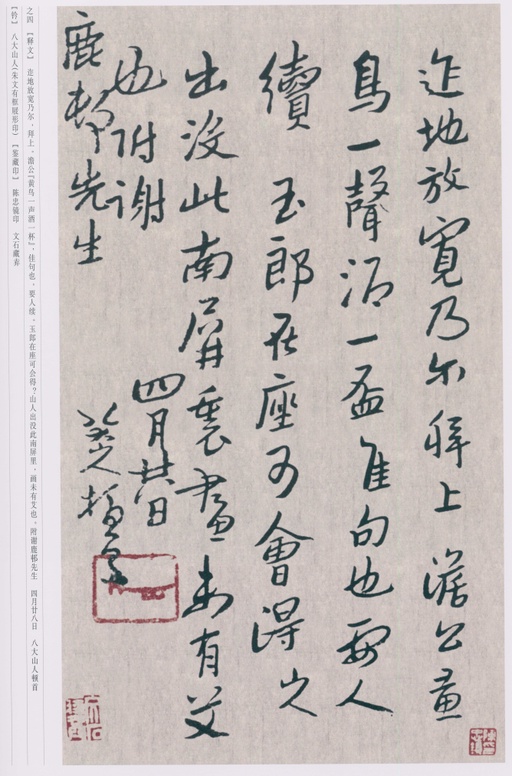 迮地放寬乃尔拜上澹公黄
鳥一聲酒一盃佳句也要人
續玉郎在座可會得山人
出没此南屏裏畫未有艾
也附謝
四月廿八日
鹿邨先生
八大山人頓首
之四 【释文】 迮地放宽乃尔,拜上。澹公『黄鸟一声酒一杯』,佳句也,要人续。玉郎在座可会得?山人出没此南屏里,画未有艾也。附谢鹿邨先生 四月廿八日 八大山人顿首
【钤】 八大山人(朱文有框屐形印) 【鉴藏印】 陈忠镜印 文石藏弆